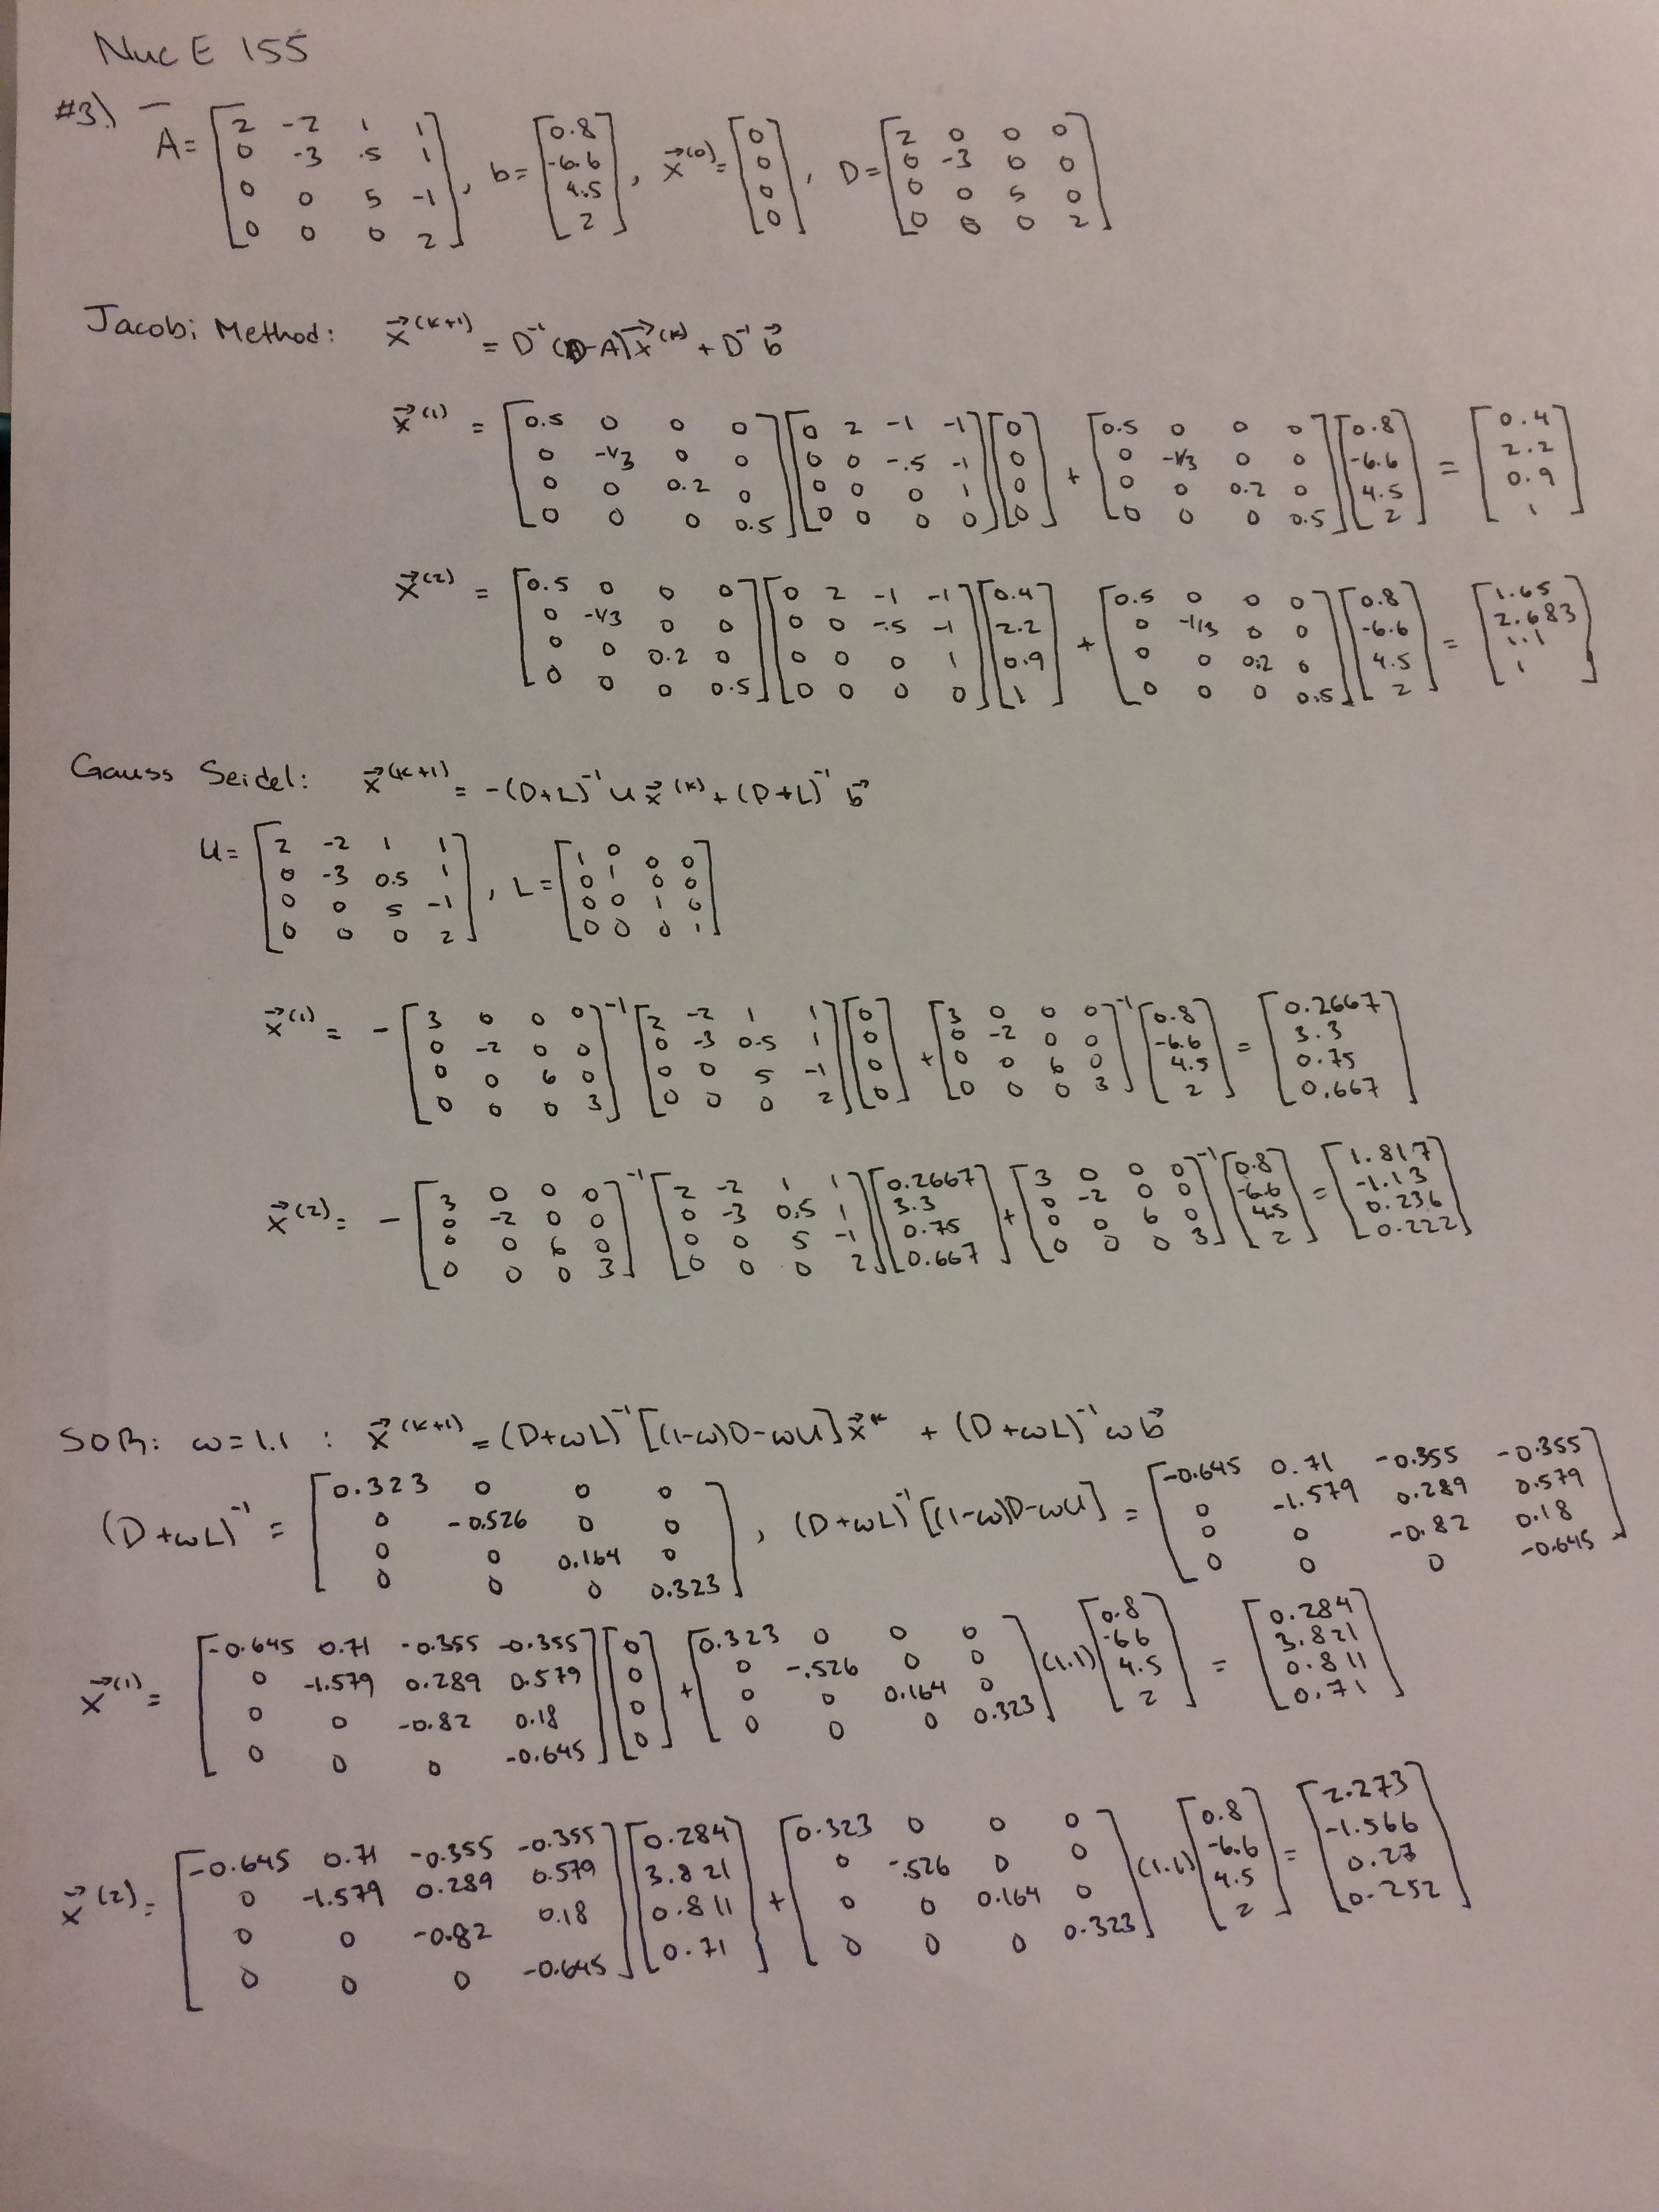 NucE 155
#3.) A = [2 -2 1 1; 0 -3 .5 1; 0 0 5 -1; 0 0 0 2], b = [0.8; -6.6; 4.5; 2], x⃗^(0) = [0; 0; 0; 0], D = [2 0 0 0; 0 -3 0 0; 0 0 5 0; 0 0 0 2]
Jacobi Method: x⃗^(k+1) = D^-1 (D-A) x⃗^(k) + D^-1 b⃗
x⃗^(1) = [0.5 0 0 0; 0 -1/3 0 0; 0 0 0.2 0; 0 0 0 0.5] [0 2 -1 -1; 0 0 -.5 -1; 0 0 0 1; 0 0 0 0] [0; 0; 0; 0] + [0.5 0 0 0; 0 -1/3 0 0; 0 0 0.2 0; 0 0 0 0.5] [0.8; -6.6; 4.5; 2] = [0.4; 2.2; 0.9; 1]
x⃗^(2) = [0.5 0 0 0; 0 -1/3 0 0; 0 0 0.2 0; 0 0 0 0.5] [0 2 -1 -1; 0 0 -.5 -1; 0 0 0 1; 0 0 0 0] [0.4; 2.2; 0.9; 1] + [0.5 0 0 0; 0 -1/3 0 0; 0 0 0.2 0; 0 0 0 0.5] [0.8; -6.6; 4.5; 2] = [1.65; 2.683; 1.1; 1]
Gauss Seidel: x⃗^(k+1) = -(D+L)^-1 U x⃗^(k) + (D+L)^-1 b⃗
U = [2 -2 1 1; 0 -3 0.5 1; 0 0 5 -1; 0 0 0 2], L = [1 0 0 0; 0 1 0 0; 0 0 1 0; 0 0 0 1]
x⃗^(1) = -[3 0 0 0; 0 -2 0 0; 0 0 6 0; 0 0 0 3]^-1 [2 -2 1 1; 0 -3 0.5 1; 0 0 5 -1; 0 0 0 2] [0; 0; 0; 0] + [3 0 0 0; 0 -2 0 0; 0 0 6 0; 0 0 0 3]^-1 [0.8; -6.6; 4.5; 2] = [0.2667; 3.3; 0.75; 0.667]
x⃗^(2) = -[3 0 0 0; 0 -2 0 0; 0 0 6 0; 0 0 0 3]^-1 [2 -2 1 1; 0 -3 0.5 1; 0 0 5 -1; 0 0 0 2] [0.2667; 3.3; 0.75; 0.667] + [3 0 0 0; 0 -2 0 0; 0 0 6 0; 0 0 0 3]^-1 [0.8; -6.6; 4.5; 2] = [1.817; -1.13; 0.236; 0.222]
SOR: ω=1.1 : x⃗^(k+1) = (D+ωL)^-1 [(1-ω)D-ωU] x⃗^k + (D+ωL)^-1 ω b⃗
(D+ωL)^-1 = [0.323 0 0 0; 0 -0.526 0 0; 0 0 0.164 0; 0 0 0 0.323], (D+ωL)^-1 [(1-ω)D-ωU] = [-0.645 0.71 -0.355 -0.355; 0 -1.579 0.289 0.579; 0 0 -0.82 0.18; 0 0 0 -0.645]
x⃗^(1) = [-0.645 0.71 -0.355 -0.355; 0 -1.579 0.289 0.579; 0 0 -0.82 0.18; 0 0 0 -0.645] [0; 0; 0; 0] + [0.323 0 0 0; 0 -.526 0 0; 0 0 0.164 0; 0 0 0 0.323] (1.1) [0.8; -6.6; 4.5; 2] = [0.284; 3.821; 0.811; 0.71]
x⃗^(2) = [-0.645 0.71 -0.355 -0.355; 0 -1.579 0.289 0.579; 0 0 -0.82 0.18; 0 0 0 -0.645] [0.284; 3.821; 0.811; 0.71] + [0.323 0 0 0; 0 -.526 0 0; 0 0 0.164 0; 0 0 0 0.323] (1.1) [0.8; -6.6; 4.5; 2] = [2.273; -1.566; 0.27; 0.252]